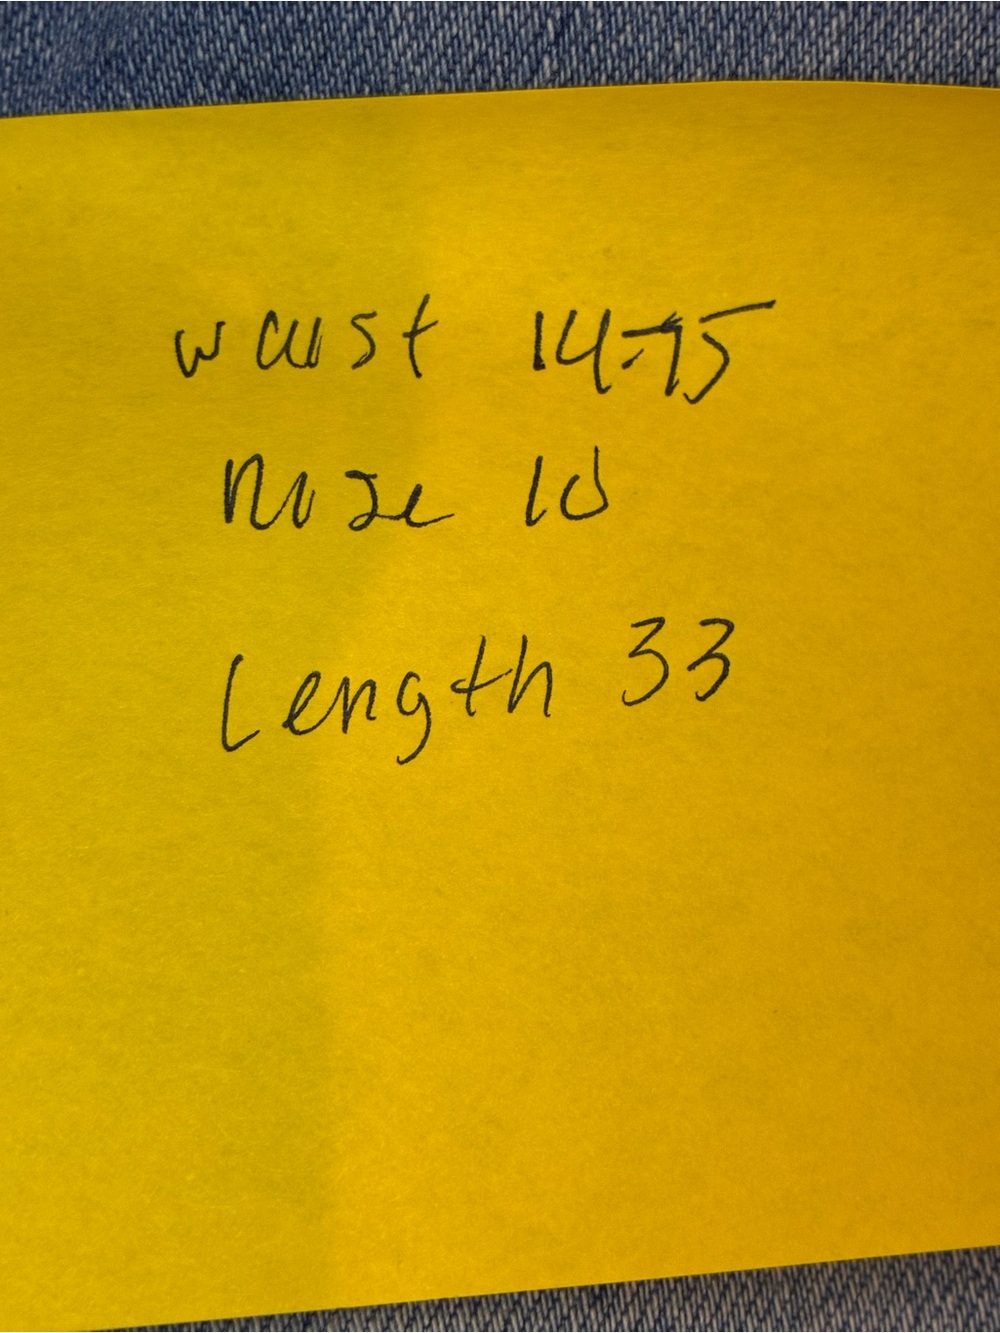 waist 14.75
Rise 10
Length 33